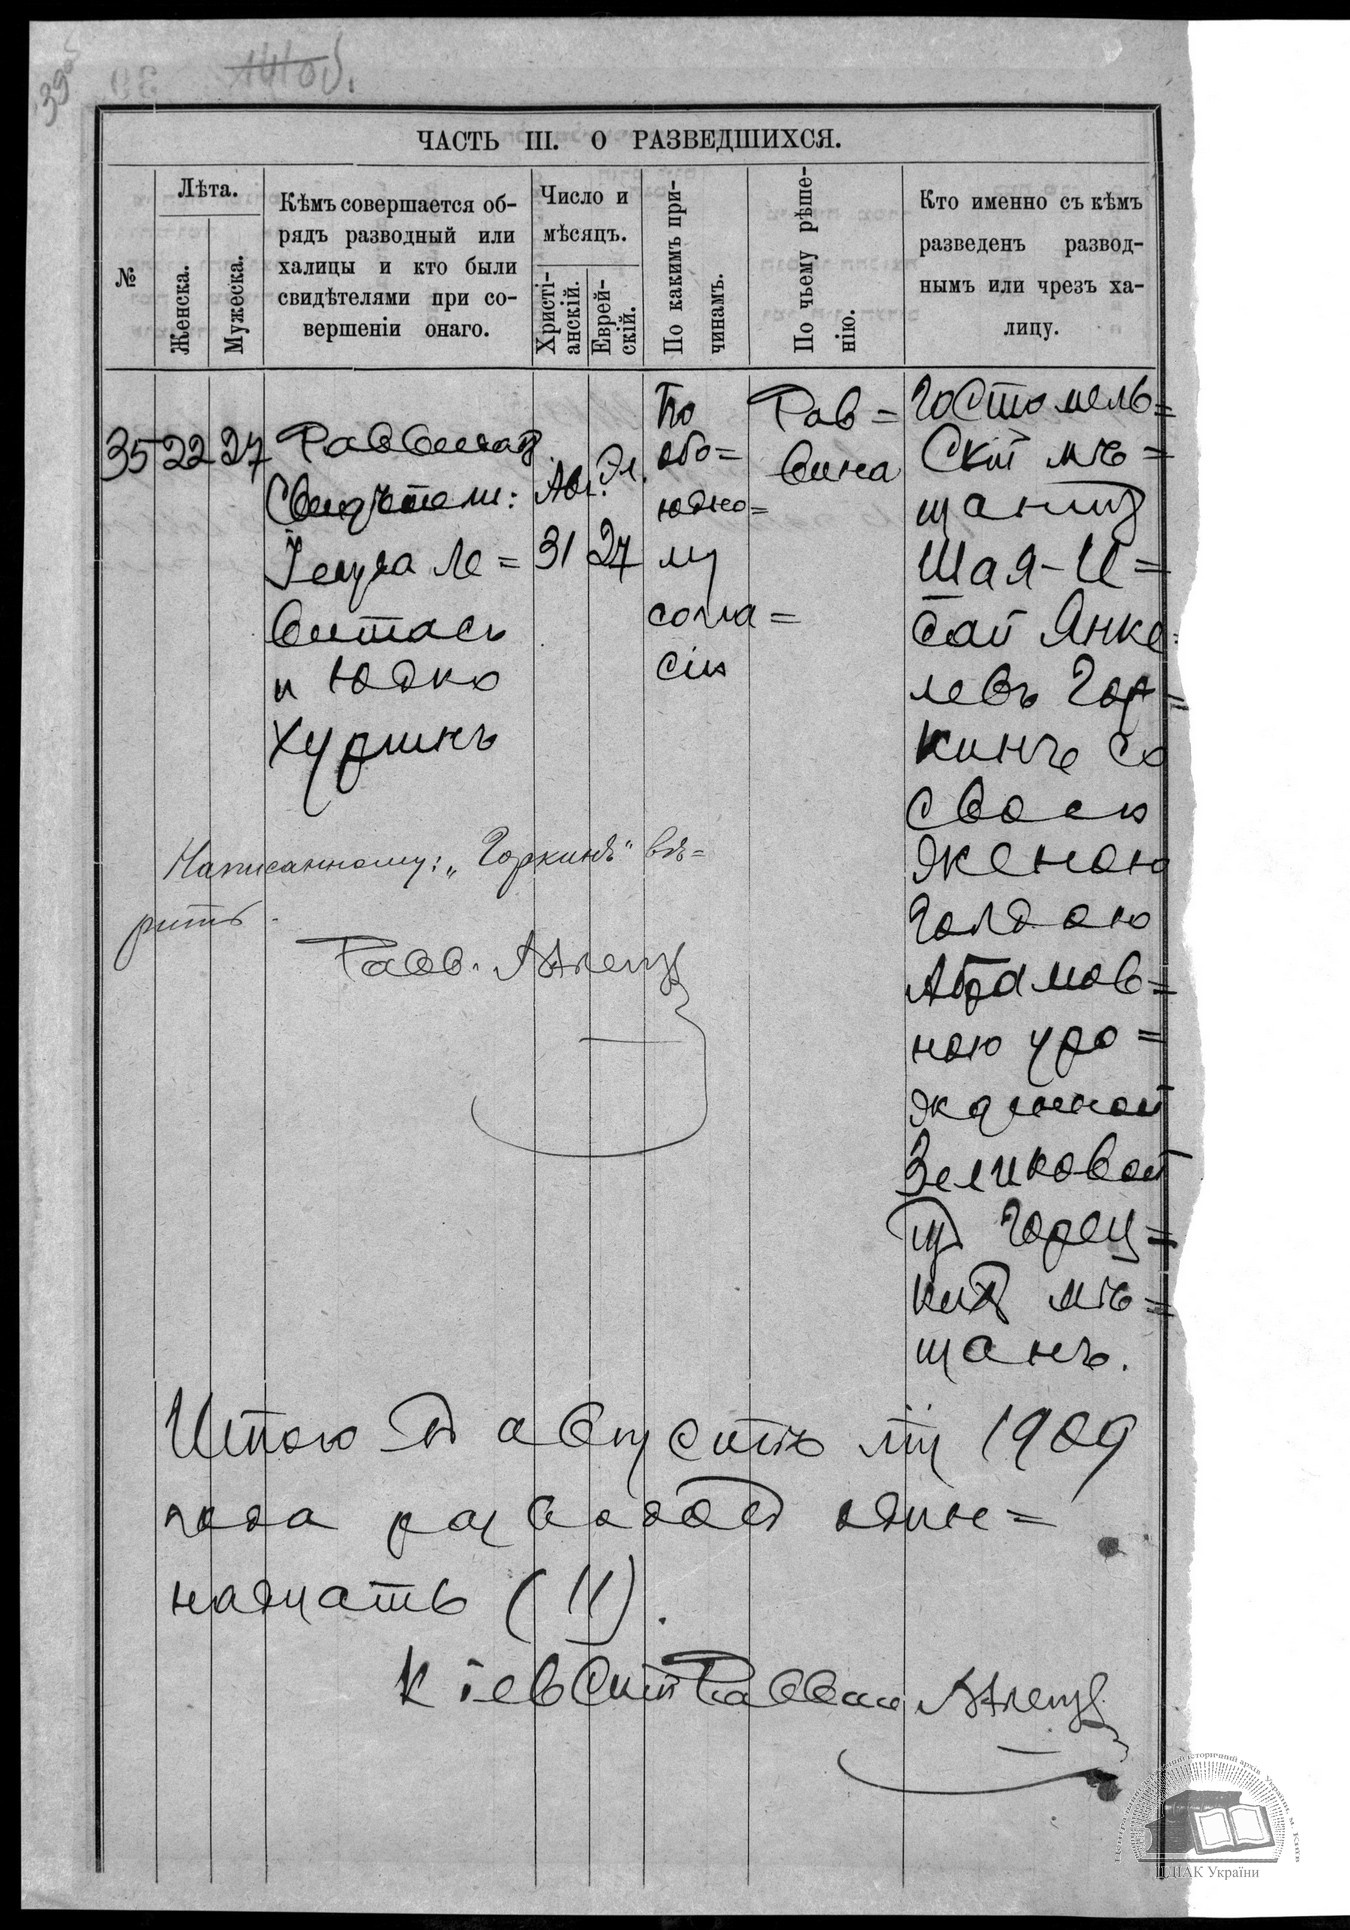 39об
ЧАСТЬ III. О РАЗВЕДШИХСЯ.
№
Лѣта.
Женска.
Мужеска.
Кѣмъ совершается об-
рядъ разводный или
халицы и кто были
свидѣтелями при со-
вершеніи онаго.
Число и
мѣсяцъ.
Христі-
анскій.
Еврей-
скій.
По какимъ при-
чинамъ.
По чьему рѣше-
нію.
Кто именно съ кѣмъ
разведенъ развод-
нымъ или чрезъ ха-
лицу.
35
22
27
Раввинатъ
Свидѣтели:
Ле=
витасъ
и Юдко
Хуринъ
Авг.
31
Эл.
27
По
обо=
юдно=
му
согла=
сію
Рав=
вина
Гостомель=
скій мѣ=
щанинъ
Шая-И=
Янке=
левъ Гор=
кинъ со
своею
женою
Голдою
Абрамов=
ною уро=
жденной
Зеликовой
изъ Горец=
кихъ мѣ=
щанъ.
Написанному: „Горкинъ" вѣ=
рить.
Равв.
Итого въ августѣ м-цѣ 1909
года разводовъ один=
надцать (11).
Кіевскій Раввинъ
ЦДІАК України